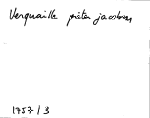 Verquaille pieter jacobus
1757 / 3